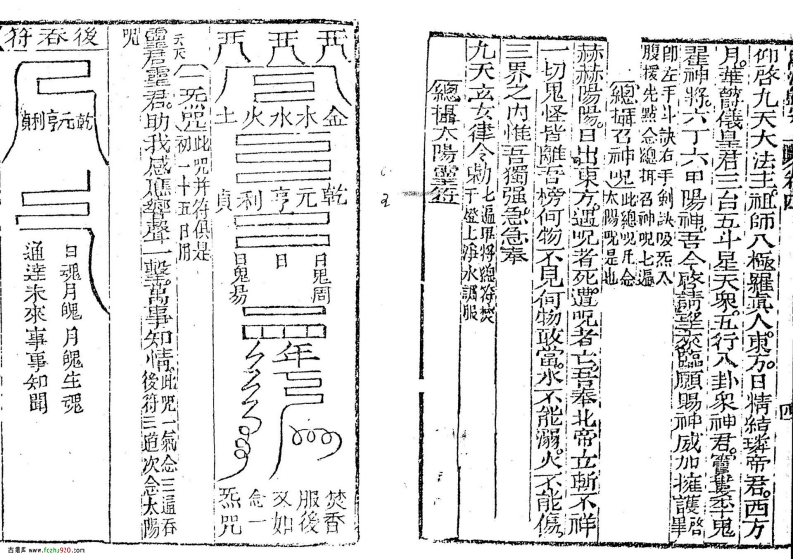 仰啓九天大法主。祖師八極羅真人。東方日情結璘帝君。西方
月華欝儀皇君。三台五斗星天衆。五行八卦衆神君。千鬼
翟神將。六丁六甲陽神。吾今啓請望來臨。願賜神威加擁護。啓畢
即左手斗訣右手劍訣吸炁入
腹援光點念總攝召神呪七遍
總攝召神呪 此總呪凡念
太陽呪是也
赫赫陽陽。日出東方。遇呪者死。遭呪者亡。吾奉北帝立斬不祥
一切鬼怪皆離吾榜。何物不見。何物敢當。水不能溺。火不能傷。
三界之内。惟吾獨强。急急奉
九天玄女律令勑 七遍畢將總符焚
于燈上淨水調服
總攝太陽靈符
金水水火土
乾元亨利貞
日鬼周
日
日鬼易
年
焚香
服後
又如
念一
炁呪
一炁呪 此呪并符俱是
初一十五日用
靈君靈君。助我感應。響聲一擊。萬事知情。此呪一氣念三遍吞
後符三道次念太陽
呪
後吞符
乾元亨利貞
日魂月魄月魄生魂
通達未來事事知聞
古易库 www.fczhu920.com